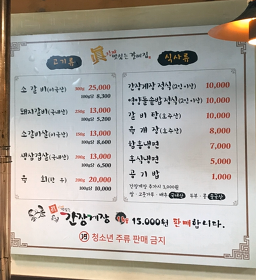 고기류
眞
맛있는 갈비집.
식사류
소 갈 비(미국산) 300g 25,000
100g당 8,300
돼지갈비(국내산) 250g 13,000
100g당 5,200
소갈비살(미국산) 150g 13,000
100g당 8,600
생삼겹살(국내산) 200g 13,000
100g당 6,500
육 회(한 우) 200g 20,000
100g당 10,000
간장게장 정식(2인 이상) 10,000
영양돌솥밥 정식(2인 이상) 10,000
갈 비 탕(호주산) 10,000
육 개 장(호주산) 8,000
함흥냉면 7,000
후식냉면 5,000
공 기 밥 1,000
간장게장 15,000원 판매합니다.
청소년 주류 판매 금지